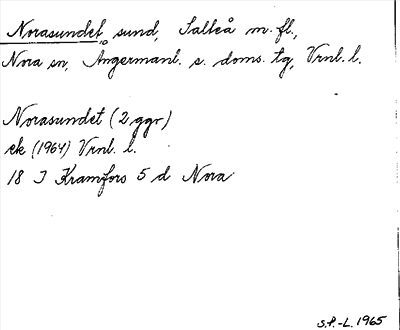 Norasundet, sund, Salteå m. fl.,
Nora sn, Ångermanl. s. doms. tg, Vrnl. l.
Norasundet (2 ggr)
ek (1964) Vrnl. l.
18 J Kramfors 5 d Nora
S.P.-L. 1965